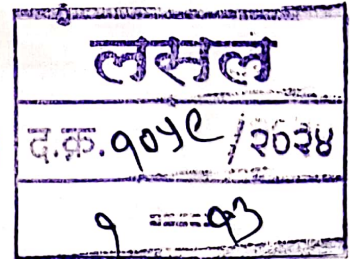 लसल
द.क्र. १०५९/२०२४
१ — १३